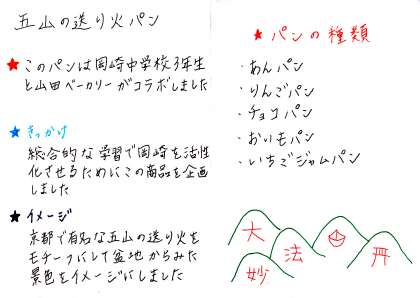 五山の送り火パン
★このパンは岡崎中学校3年生
と山田ベーカリーがコラボしました
★きっかけ
総合的な学習で岡崎を活性
化させるためにこの商品を企画
しました
★イメージ
京都で有名な五山の送り火を
モチーフにして盆地からみた
景色をイメージにしました
★パンの種類
・あんパン
・りんごパン
・チョコパン
・おいもパン
・いちごジャムパン
大
妙
法